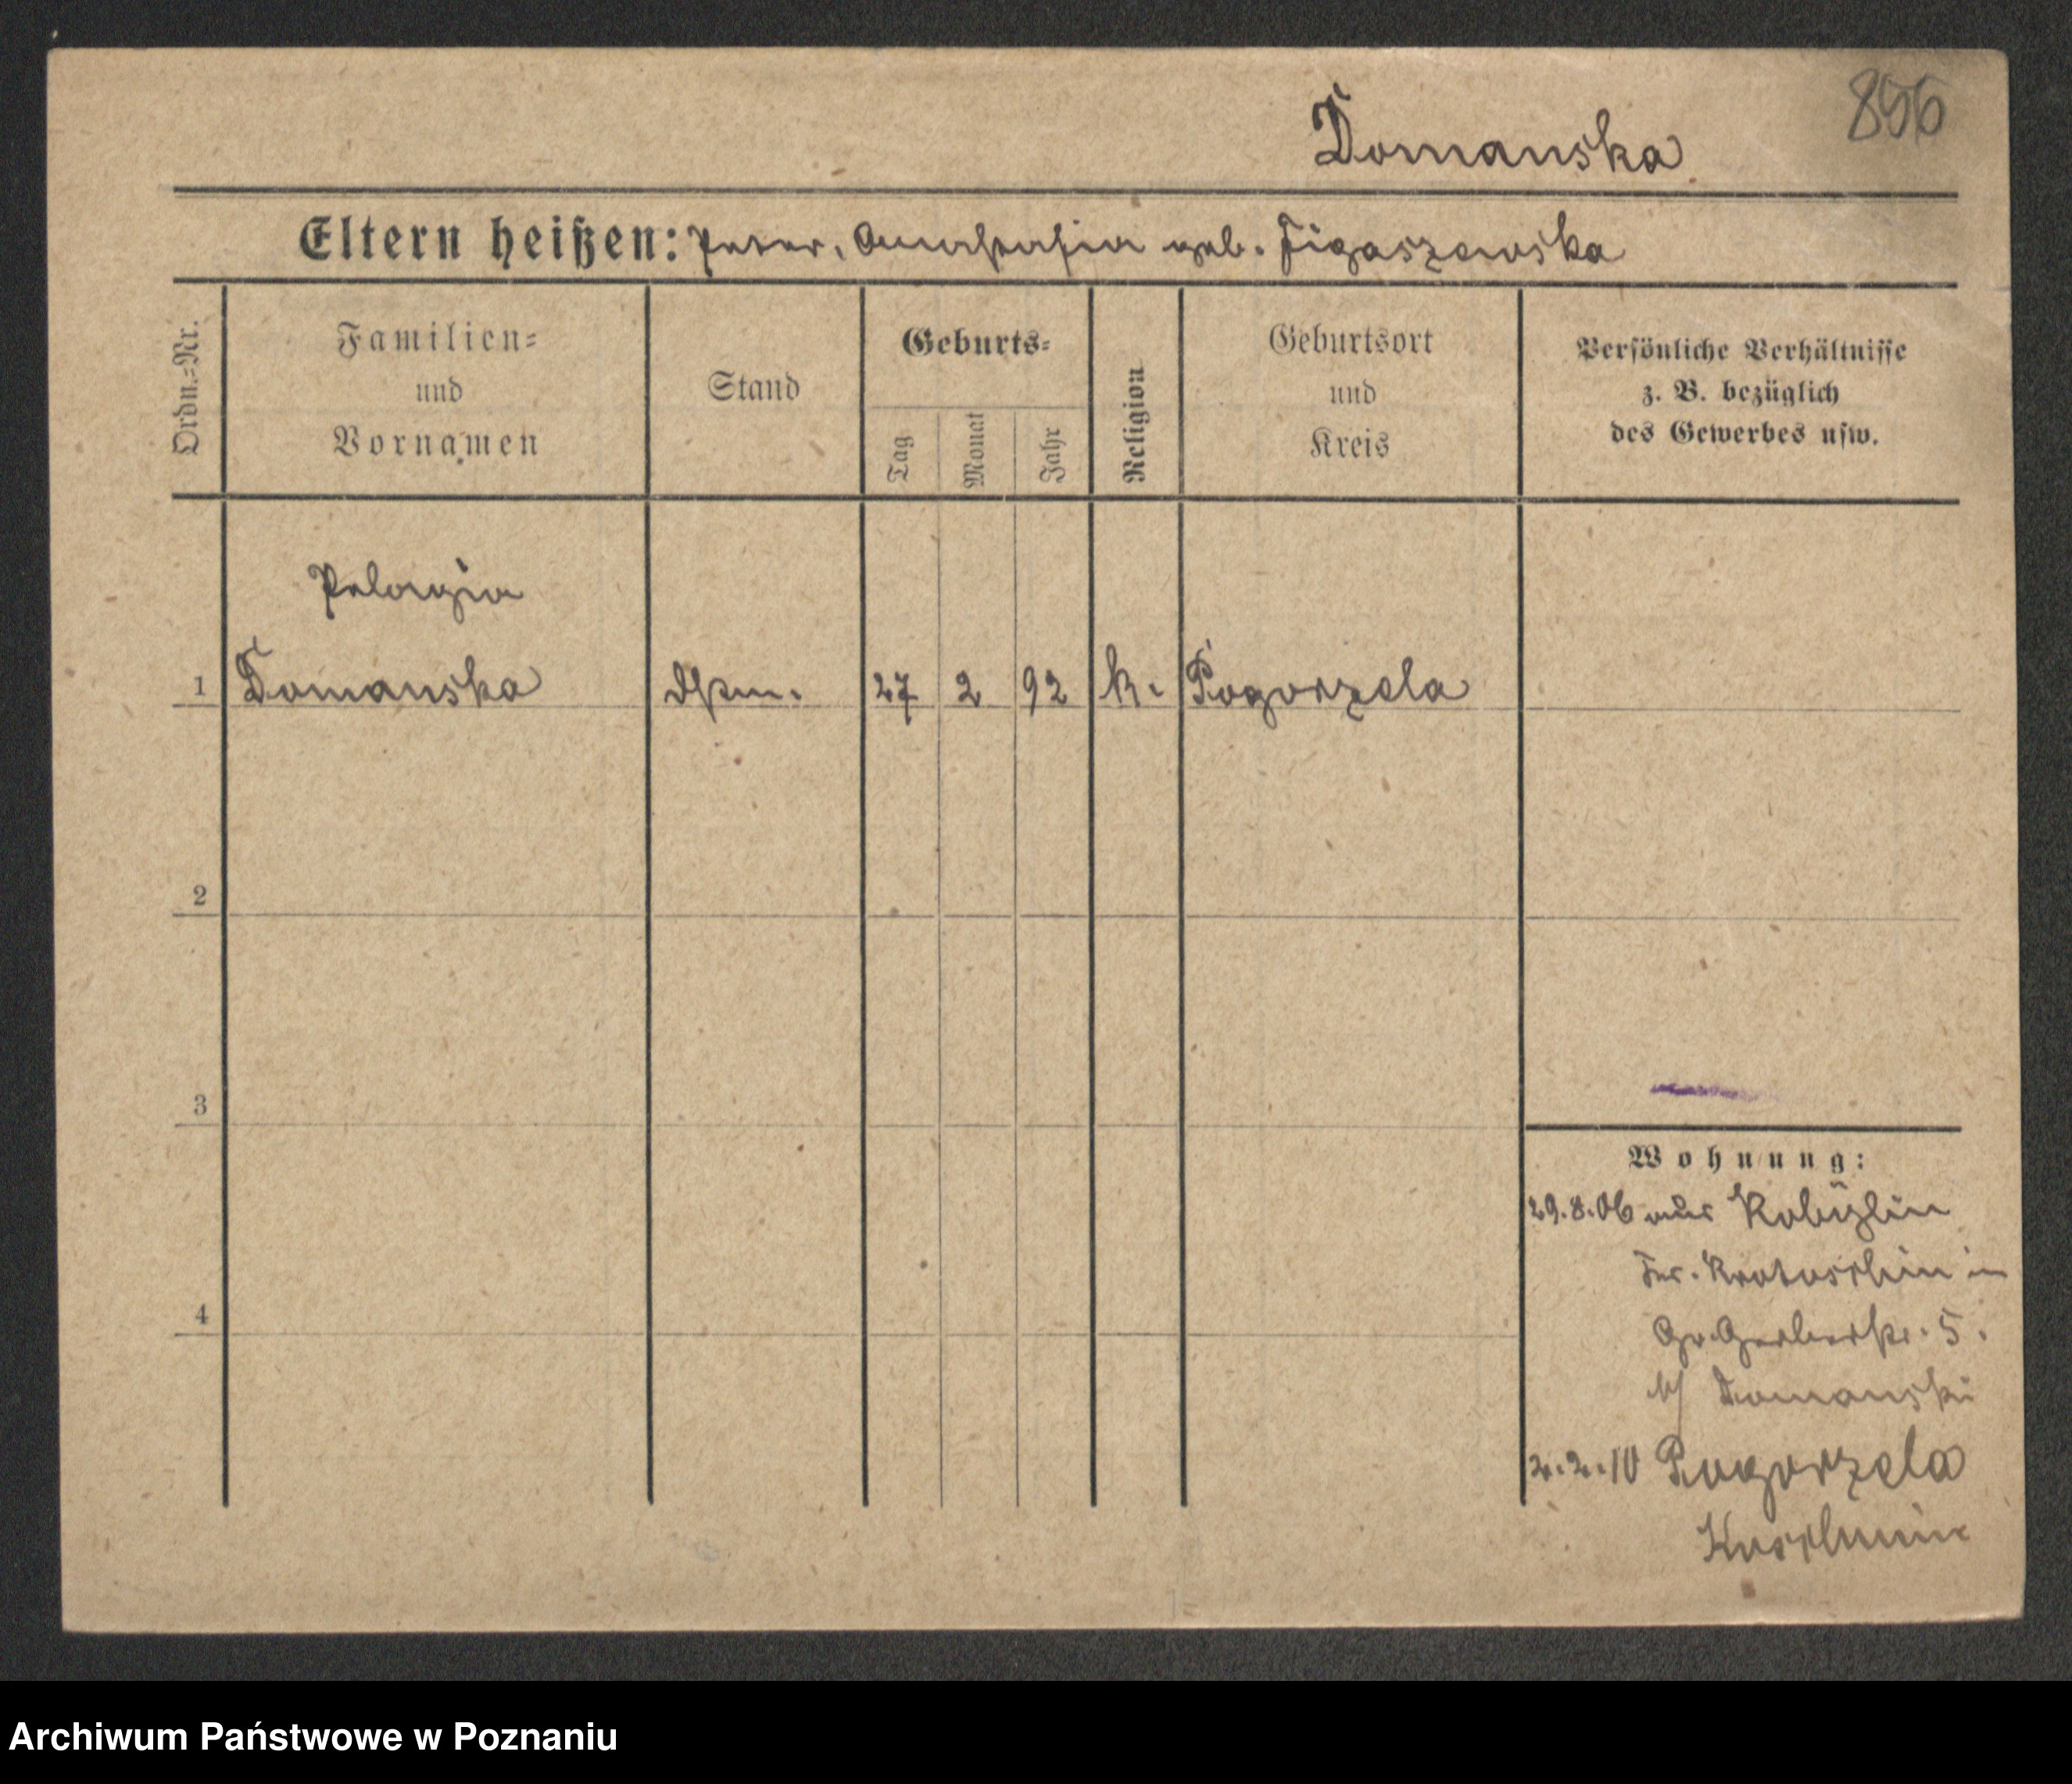 856
Domanska
Eltern heißen: Peter, Anastasia geb. Figaszewska
Ordn.=Nr.
Familien=
und
Vornamen
Stand
Geburts=
Tag
Monat
Jahr
Religion
Geburtsort
und
Kreis
Persönliche Verhältnisse
z. B. bezüglich
des Gewerbes usw.
Pelagia
1 Domanska 27 2 92 k. Pogorzela
2
3
4
Wohnung:
29.8.06 aus Kobylin
Krotoschin in
Gr. Gerberstr. 5.
b/ Domanski
2.2.10 Pogorzela
Koschmin
Archiwum Państwowe w Poznaniu